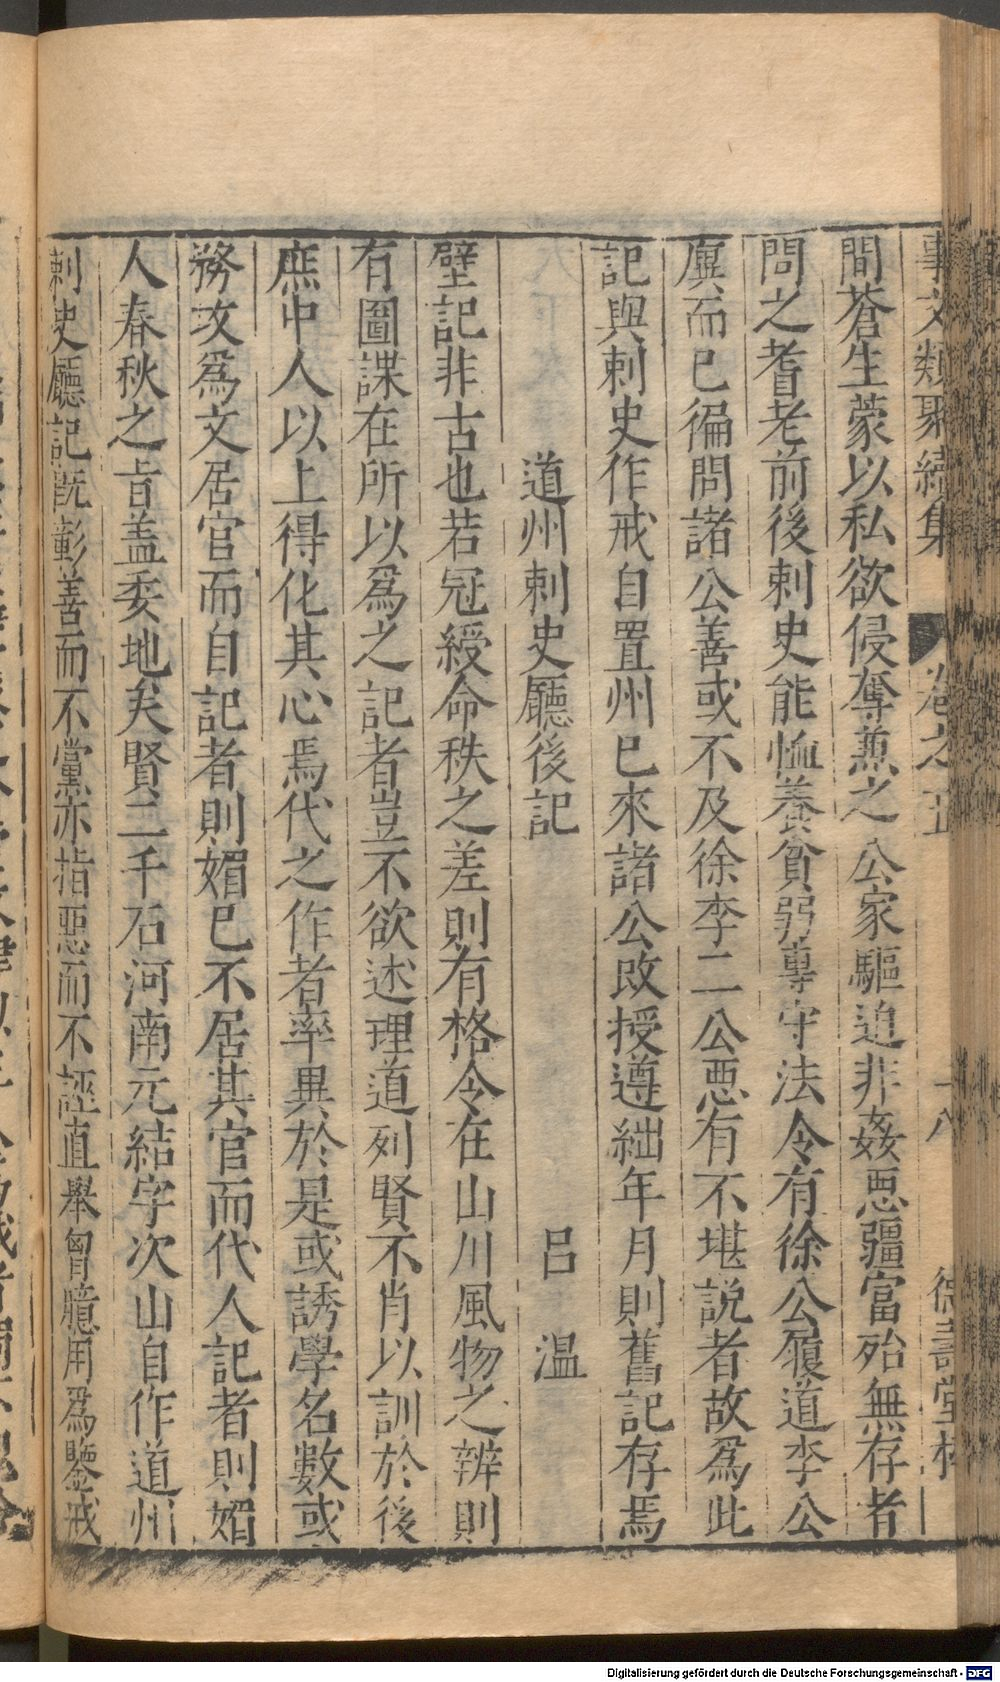 事文類聚續集 卷之五 十八 德壽堂梓
間蒼生蒙以私欲侵奪兼之公家驅迫非姦惡彊富殆無存者
問之耆老前後刺史能恤養貧弱專守法令有徐公履道李公
廙而已徧問諸公善或不及徐李二公惡有不堪説者故爲此
記與刺史作戒自置州已來諸公攺授遵絀年月則舊記存焉
道州刺史廳後記 呂溫
壁記非古也若冠綬命秩之差則有格令在山川風物之辨則
有圖諜在所以爲之記者豈不欲述理道列賢不肖以訓於後
庶中人以上得化其心焉代之作者率異於是或誘學名數或
務攻爲文居官而自記者則媚已不居其官而代人記者則媚
人春秋之旨盖委地矣賢二千石河南元結字次山自作道州
刺史廳記旣彰善而不黨亦指惡而不誣直舉胷臆用爲鑒戒
Digitalisierung gefördert durch die Deutsche Forschungsgemeinschaft - DFG